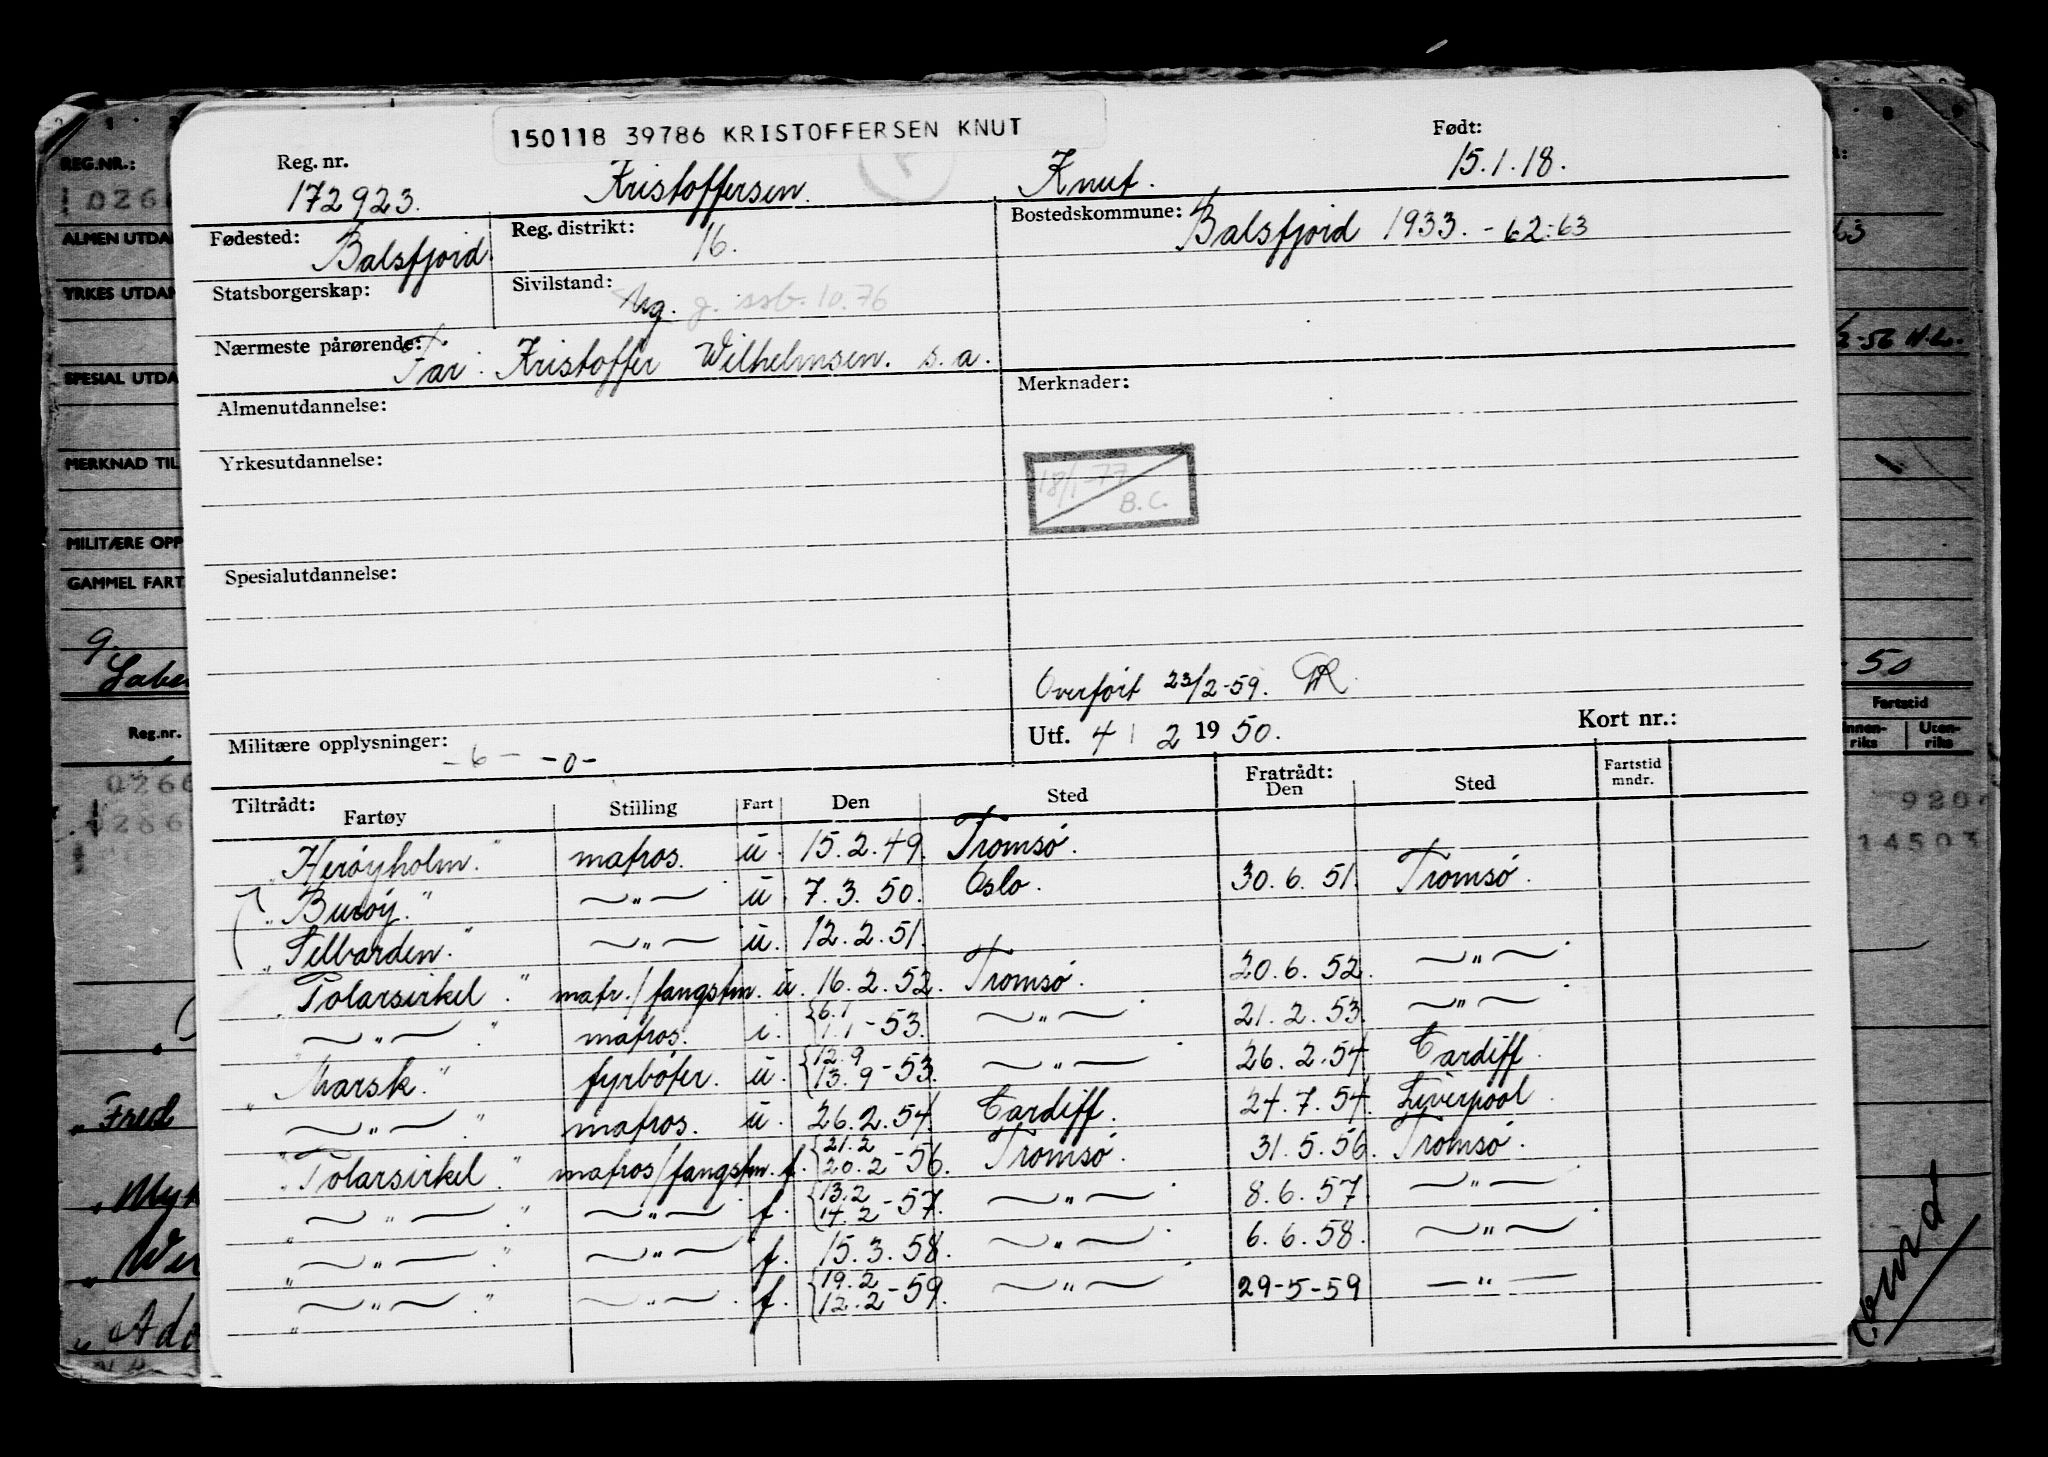 150118 39786 KRISTOFFERSEN KNUT
Født:
Reg. nr.
172923. Kristoffersen. Knut. 15.1.18.
Fødested: Balsfjord Reg. distrikt: 16. Bostedskommune: Balsfjord 1933. - 62-63
Statsborgerskap: Sivilstand: Ug. g. ssb. 10.76
Nærmeste pårørende: Far: Kristoffer Wilhelmsen. s.a.
Almenutdannelse: Merknader:
Yrkesutdannelse:
18/1-77
B.C.
Spesialutdannelse:
Overført 23/2-59.
Militære opplysninger: -6- -0- Utf. 4 / 2 1950. Kort nr.:
Tiltrådt: Fartøy Stilling Fart Den Sted Fratrådt: Den Sted Fartstid mndr.
"Herøyholm." matros. u. 15.2.49. Tromsø.
"Burøy." —"— u. 7.3.50. Oslo. 30.6.51. Tromsø.
"Selbarden." —"— u. 12.2.51.
"Polarsirkel." matr./fangstm. u. 16.2.52. Tromsø. 20.6.52. —"—
"—"—" matros. i. 6.1 1.1-53. —"— 21.2.53. —"—
"Marsk." fyrbøter. u. 12.9 13.9-53. —"— 26.2.54. Cardiff.
"—"—" matros. u. 26.2.54. Cardiff. 24.7.54. Liverpool.
"Polarsirkel." matros/fangstm. f. 21.2 20.2-56. Tromsø. 31.5.56. Tromsø.
"—"—" —"— f. 13.2 14.2-57. —"— 8.6.57. —"—
"—"—" —"— f. 15.3.58. —"— 6.6.58. —"—
"—"—" —"— f. 19.2 12.2-59. —"— 29-5-59 —"—
REG.NR.:
026
ALMEN UTDA
YRKES UTDAN
SPESIAL UTDA
MERKNAD TIL
MILITÆRE OPP
GAMMEL FART
Reg.nr.
026
"Fred
63
-50
Fartstid
Innen-riks Uten-riks
920
14503